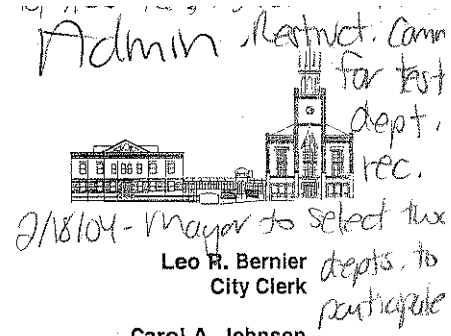 Admin, Restruct. Comm
for test
dept.
rec.
2/18/04 - Mayor to select two
depts. to
participate
Leo R. Bernier
City Clerk
Carol A. Johnson